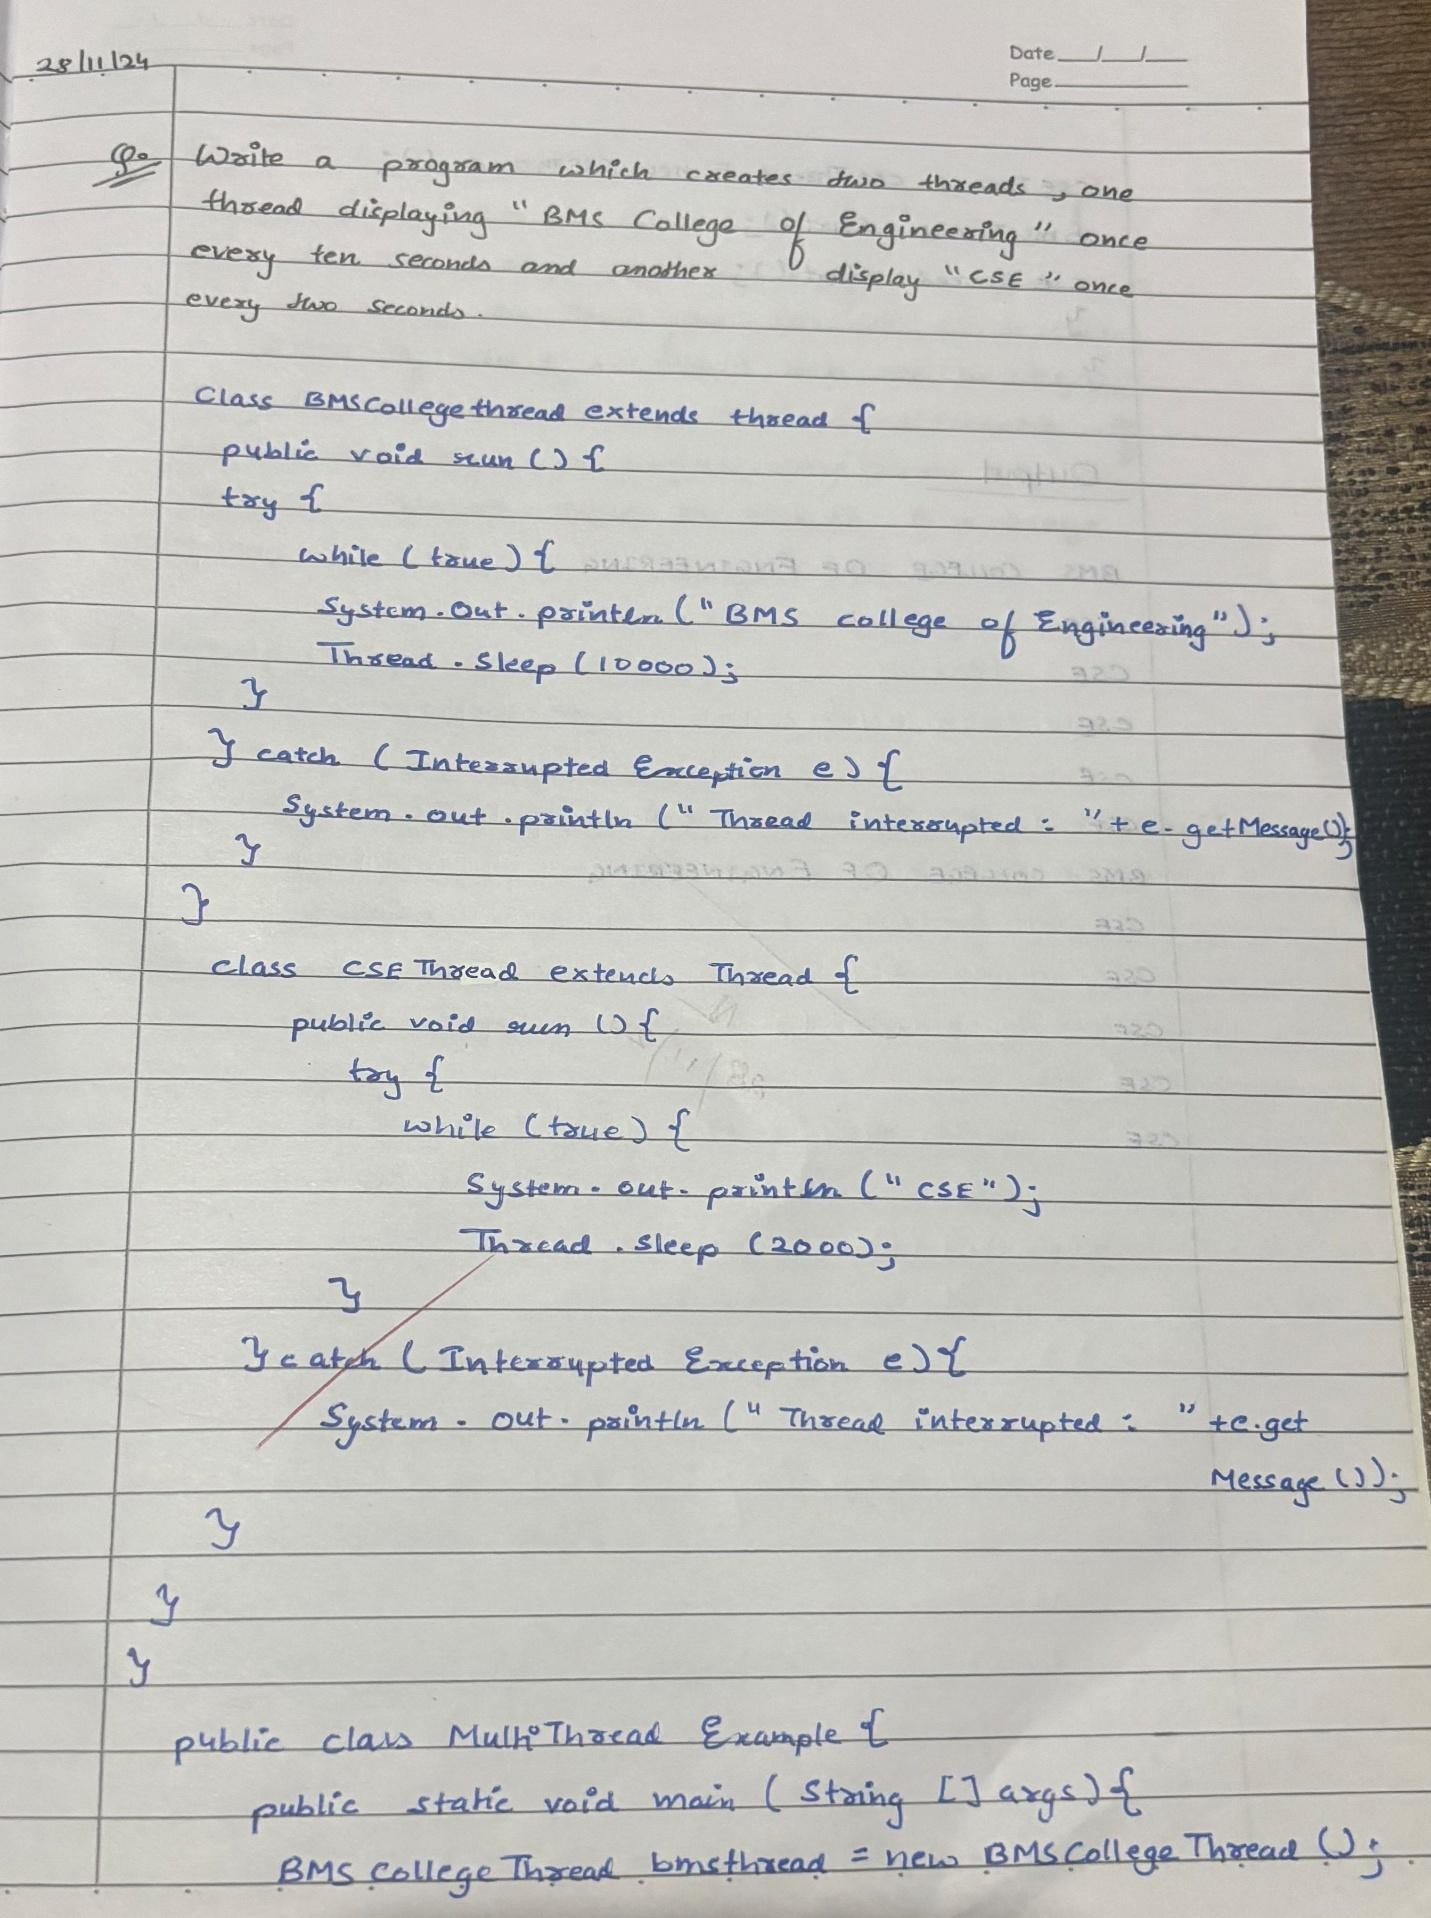 28/11/24
Date __/__/__
Page
Q. Write a program which creates two threads, one
thread displaying "BMS College of Engineering" once
every ten seconds and another display "CSE" once
every two seconds.
Class BMSCollegethread extends thread {
public void run () {
try {
while (true) {
System.Out.println ("BMS college of Engineering");
Thread.Sleep (10000);
}
} catch (Interrupted Exception e) {
System.out.println (" Thread interrupted : "+ e.getMessage());
}
}
class CSE Thread extends Thread {
public void run () {
try {
while (true) {
System.out.println (" CSE ");
Thread.Sleep (2000);
}
} catch (Interrupted Exception e) {
System.out.println (" Thread interrupted : " +e.get
Message ());
}
}
}
public class MultiThread Example {
public static void main (String [] args) {
BMS College Thread bmsthread = new BMSCollege Thread ();